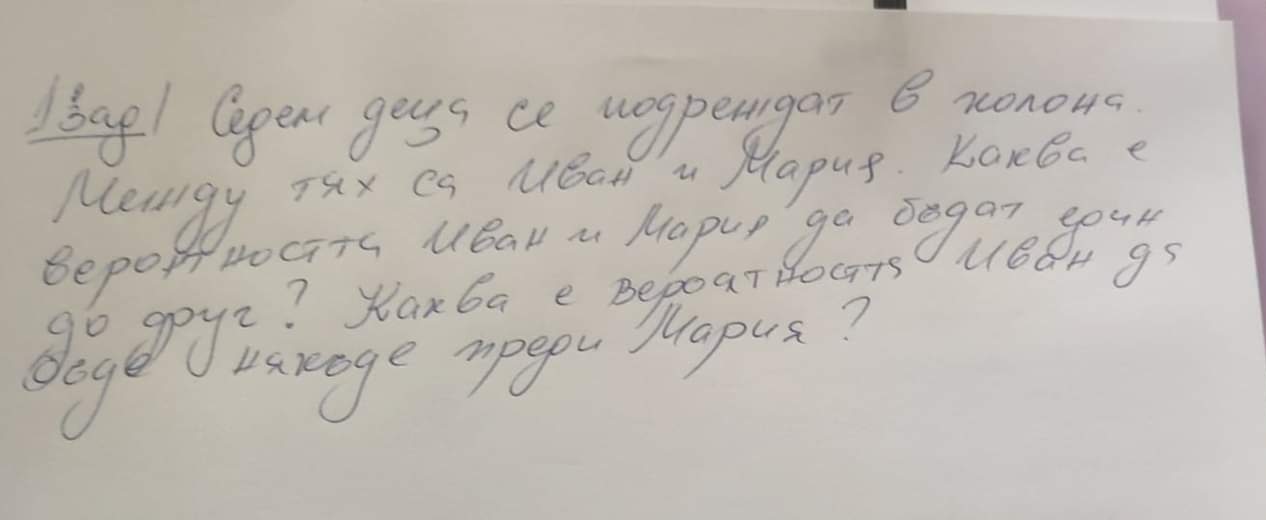 1зад/ Седем деца се подреждат в колона.
Между тях са Иван и Мария. Каква е
вероятността Иван и Мария да бъдат един
до друг? Каква е вероятността Иван да
бъде някъде преди Мария?